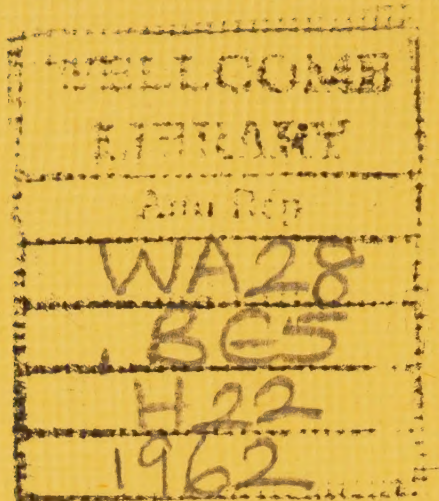 WELLCOME
LIBRARY
Ann Rep
WA28
.BE5
H22
1962